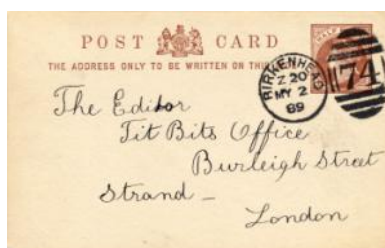 POST CARD
THE ADDRESS ONLY TO BE WRITTEN ON THIS
BIRKENHEAD
Z 20
MY 2
89
74
The Editor
Tit Bits Office
Burleigh Street
Strand –
London